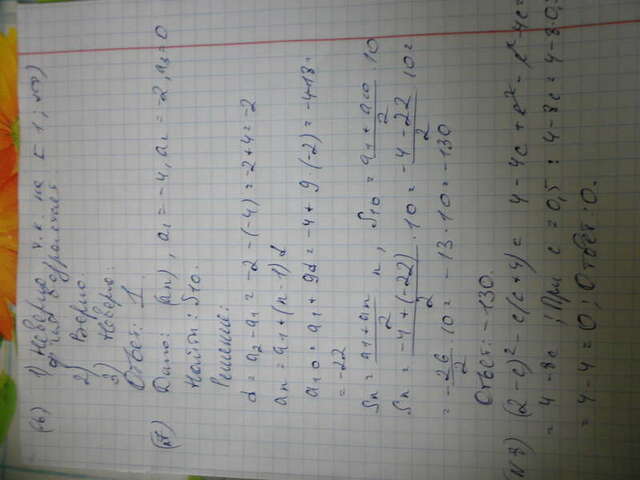 (16) 1) Неверно, т.к. на [-1; +∞)
2) Верно.
3) Неверно.
Ответ: 1.
(17) Дано: (an), a1 = -4, a2 = -2, a3 = 0
Найти: S10.
Решение:
d = a2 - a1 = -2 - (-4) = -2 + 4 = -2
an = a1 + (n-1)d
a10 = a1 + 9d = -4 + 9·(-2) = -4-18=
= -22
Sn = a1+an/2 · n, S10 = a1 + a10/2 · 10
Sn = -4+(-22)/2 · 10 = -4-22/2 · 10=
= -26/2 · 10 = -13·10 = -130
Ответ: -130.
(N8) (2-c)²- c(c+4) = 4-4c+c²-c²-4c=
= 4-8c; При c=0,5: 4-8c = 4-8·0,5
= 4-4 = 0; Ответ: 0.